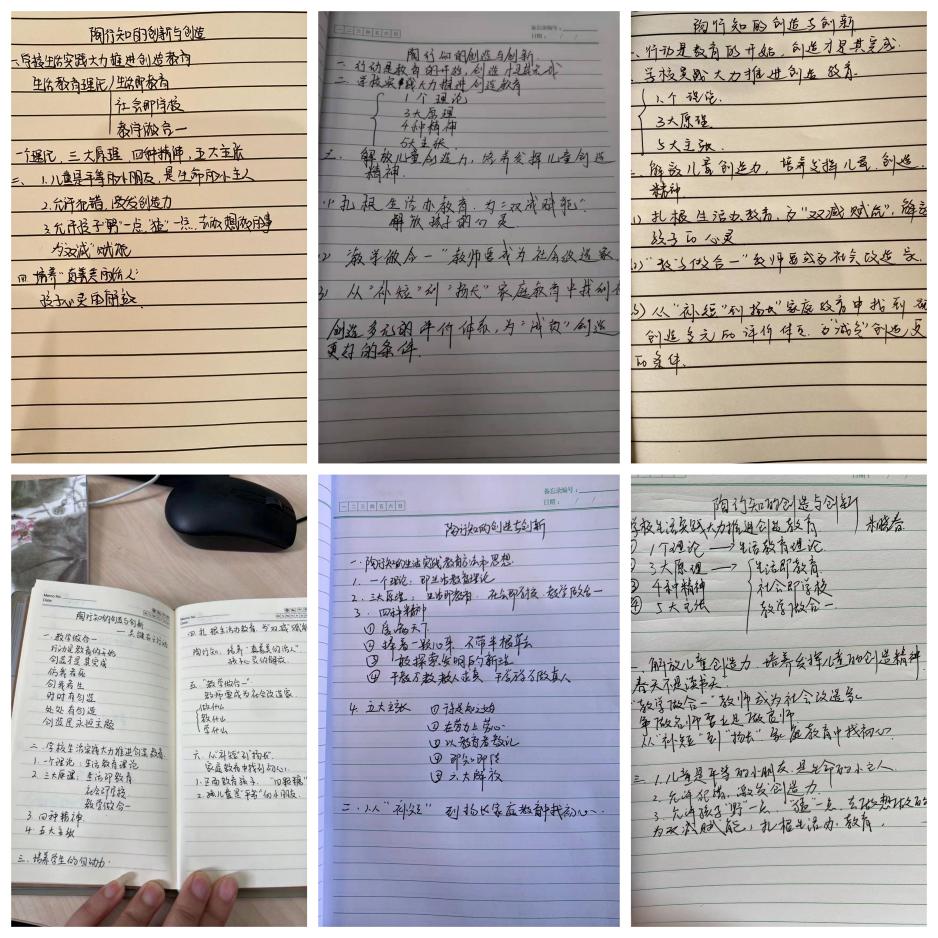 陶行知的创新与创造
一、学校生活实践大力推进创造教育
生活教育理论/生活即教育
社会即学校
教学做合一
一个理论，三大原理，四种精神，五大主张
三、1.儿童是平等的小朋友，是生命的小主人
2.允许犯错，激发创造力
3.允许孩子"野"一点，"猛"一点，去做想做的事
为"双减"赋能
四、培养"真善美的活人"
孩子心灵的解放
一二三四五六日
备忘录编号：
日期： / /
陶行知的创造与创新
一、行动是教育的开始，创造才是其完成
二、学校实践大力推进创造教育
1个理论
3大原理
4种精神
5大主张
三、解放儿童创造力，培养发挥儿童创造
精神.
1) 扎根生活办教育，为"双减赋能".
解放孩子的心灵
2) "教学做合一"教师要成为社会改造家
3) 从"补短"到"扬长"家庭教育中找到
创造多元的评价体系，为"减负"创造
更好的条件.
陶行知的创造与创新
一、行动是教育的开始，创造才是其完成
学校实践大力推进创造教育.
1个理论.
3大原理
5大主张.
解放儿童创造力，培养发挥儿童创造
精神
1) 扎根生活办教育，为"双减赋能"，解放
孩子的心灵
2) "教学做合一"教师要成为社会改造家.
3) 从"补短"到"扬长"家庭教育中找到
创造多元的评价体系.为"减负"创造更
的条件.
Memo No.
Date
陶行知的创造与创新
一、教学做合一
行动是教育的开始
创造才是其完成
仿我者死
创我者生
时时有创造
处处有创造
创造是永恒主题
二、学校生活实践大力推进创造教育.
1.一个理论：生活教育理论
2.三大原理：生活即教育
社会即学校
教学做合一
3.四种精神.
4.五大主张
三、培养学生的自动力.
四、扎根生活办教育，为双减赋能
陶行知：培养"真善美的活人"
孩子心灵的解放.
五、"教学做合一"
教师要成为社会改造家.
做什么
教什么
学什么
六、从"补短"到"扬长"
家庭教育中找到初心.
1.正面教育孩子，"四颗糖"
2.孩儿童是"平等"的小朋友.
一二三四五六日
备忘录编号：
日期： / /
陶行知的创造与创新
一、陶行知的生活实践教育方法和思想
1.一个理论：即生活教育理论
2.三大原理：生活即教育，社会即学校，教学做合一
3.四种精神
① 爱满天下
② 捧着一颗心来，不带半根草去
③ 敢探索发明的新理
④ 千教万教教人求真，千学万学学做真人
4.五大主张 ① 行是知之始
② 在劳力上劳心
③ 以教人者教己
④ 即知即传
⑤ 六大解放
二、从"补短"到扬长家庭教育中找初心.
日期： /
陶行知的创造与创新
朱晓春
学校生活实践大力推进创造教育
① 1个理论 → 生活教育理论.
② 3大原理 → 生活即教育
③ 4种精神 社会即学校
④ 5大主张 教学做合一
二、解放儿童创造力，培养发挥儿童的创造精神.
春天不是读书天
"教学做合一"教师成为社会改造家
争做名师要先是做良师
从"补短"到"扬长"家庭教育中找初心.
三、1.儿童是平等的小朋友，是生命的小主人
2.允许犯错，激发创造力
3.允许孩子"野"一点，"猛"一点，去做想做的
为双减赋能，扎根生活办教育.